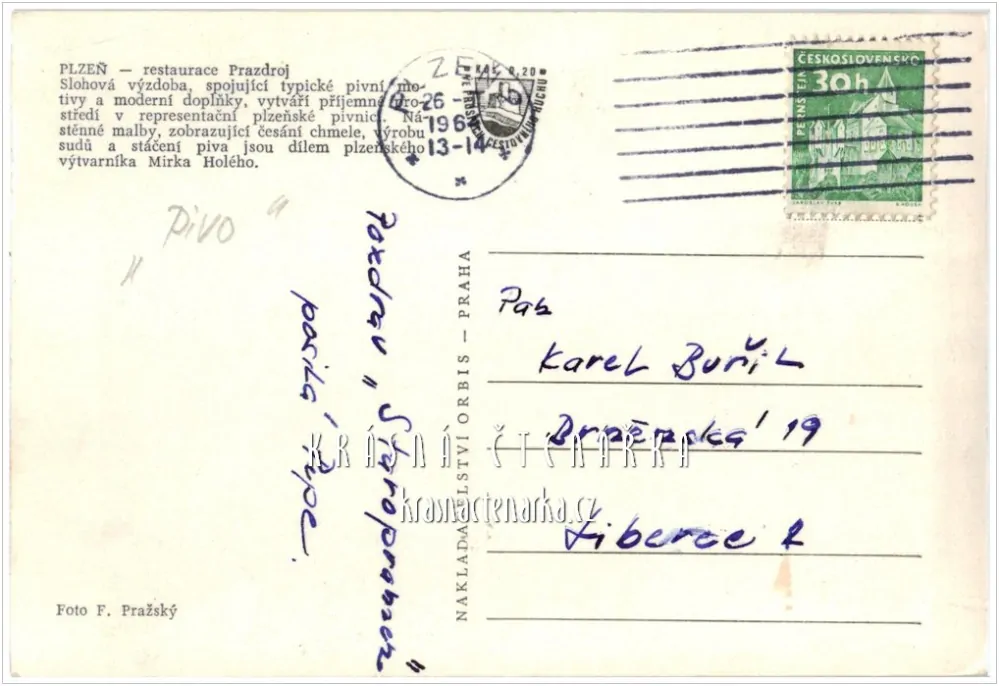 PLZEŇ — restaurace Prazdroj
Slohová výzdoba, spojující typické pivní mo-
tivy a moderní doplňky, vytváří příjemné pro-
středí v representační plzeňské pivnici. Ná-
stěnné malby, zobrazující česání chmele, výrobu
sudů a stáčení piva jsou dílem plzeňského
výtvarníka Mirka Holého.
26
196
13-14
ČESKOSLOVENSKO
30h
PERNŠTEJN
„ Pivo "
Pozdrav „Staropramen"
posílá Pepa.
NAKLADATELSTVÍ ORBIS — PRAHA
Pan
Karel Buřil
Brněnská 19
Liberec
KRÁSNÁ ČTENÁŘKA
krasnactenarka.cz
Foto F. Pražský